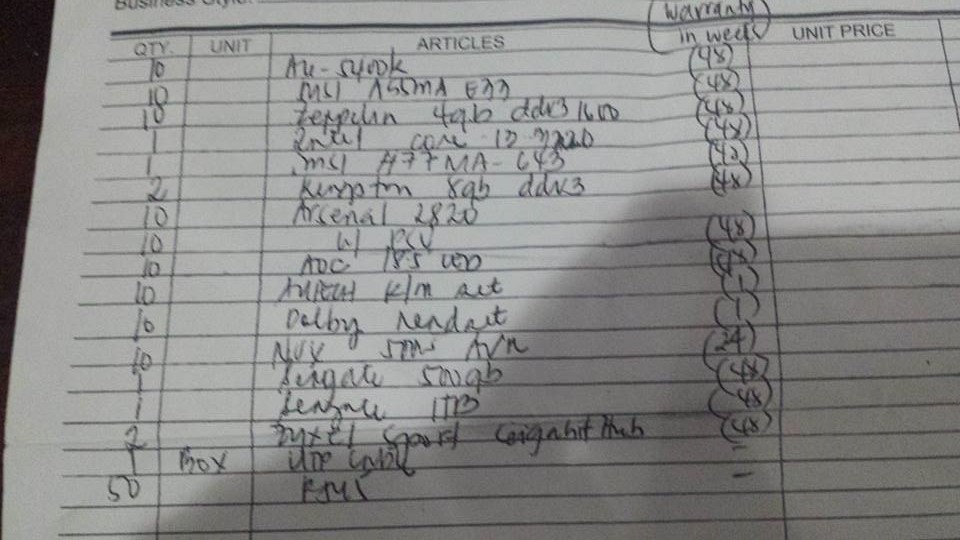 Business Style:
QTY. UNIT ARTICLES (Warranty in weeks) UNIT PRICE
10 A4-5400k (48)
10 MSI A55MA E33 (48)
10 Zeppelin 4gb ddr3 1600 (48)
1 Intel core i3 3220 (48)
1 MSI H77MA-G43 (48)
2 Kingston 8gb ddr3 (48)
10 Arsenal 2820
10 w/ PSU (48)
10 AOC 18.5 LED (48)
10 A4tech k/m set (1)
10 Dolby Headset (1)
10 500w AVR (24)
1 Seagate 500gb (48)
1 Seagate 1TB (48)
2 Zyxel Gigabit Hub (48)
1 Box UTP Cable -
50 RJ45 -